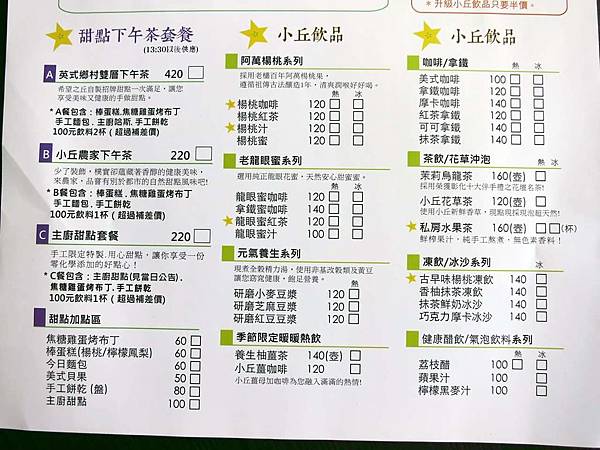 * 升級小丘飲品只要半價。
甜點下午茶套餐
(13:30以後供應)
A 英式鄉村雙層下午茶 420
希望之丘自製招牌甜點一次滿足，讓您
享受美味又健康的手做甜點。
* A餐包含：棒蛋糕.焦糖雞蛋烤布丁
手工麵包．主廚哈斯．手工餅乾
100元飲料2杯（超過補差價）
B 小丘農家下午茶 220
少了裝飾，樸實卻蘊藏著香醇的健康美味，
來農家，品嘗有別於都市的自然甜點風味吧!
* B餐包含：棒蛋糕．焦糖雞蛋烤布丁
．手工餅乾
100元飲料1杯（超過補差價）
C 主廚甜點套餐 220
手工限定特製.用心甜點，讓你享受一份
零化學添加的好點心！
* C餐包含：主廚甜點(見當日公告).
焦糖雞蛋烤布丁.手工餅乾
100元飲料1杯（超過補差價）
甜點加點區
焦糖雞蛋烤布丁 60
棒蛋糕(楊桃/檸檬鳳梨) 60
今日麵包 60
美式貝果 50
手工餅乾 (盤) 80
主廚甜點 100
小丘飲品
阿萬楊桃系列
採用老欉百年阿萬楊桃果，
遵循祖傳古法釀造1年，清爽潤喉好好喝。
熱 冰
楊桃咖啡 120
楊桃紅茶 120
楊桃汁 120
楊桃蜜 120
老龍眼蜜系列
選用純正龍眼花蜜，天然安心甜蜜蜜。
熱 冰
龍眼蜜咖啡 120
拿鐵蜜咖啡 140
龍眼蜜紅茶 120
龍眼蜜汁 100
元氣養生系列
現煮全榖精力湯，使用非基改榖類及黃豆
讓您窈窕健康，飽足好滋味。
熱
研磨小麥豆漿 120
研磨芝麻豆漿 120
研磨紅豆豆漿 120
季節限定暖暖熱飲
養生柚薑茶 140(壺)
小丘薑咖啡 140
小丘薑母加咖啡為您融入滿滿的熱情!
小丘飲品
咖啡/拿鐵
熱 冰
美式咖啡 100
拿鐵咖啡 120
摩卡咖啡 140
紅茶拿鐵 120
可可拿鐵 140
抹茶拿鐵 140
茶飲/花草沖泡
熱 冰
茉莉烏龍茶 160(壺)
採用榮獲彰化十大伴手禮之花壇名茶!
小丘花草茶 120(壺)
使用小丘新鮮香草，現點現採現泡超天然!
私房水果茶 160(壺) (杯)
鮮榨果汁，純手工熬煮，無色素香料！
凍飲/冰沙系列
冰
古早味楊桃凍飲 140
香柚抹茶凍飲 140
抹茶鮮奶冰沙 140
巧克力摩卡冰沙 140
健康醋飲/氣泡飲料系列
熱 冰
荔枝醋 100
蘋果汁 100
檸檬黑麥汁 100